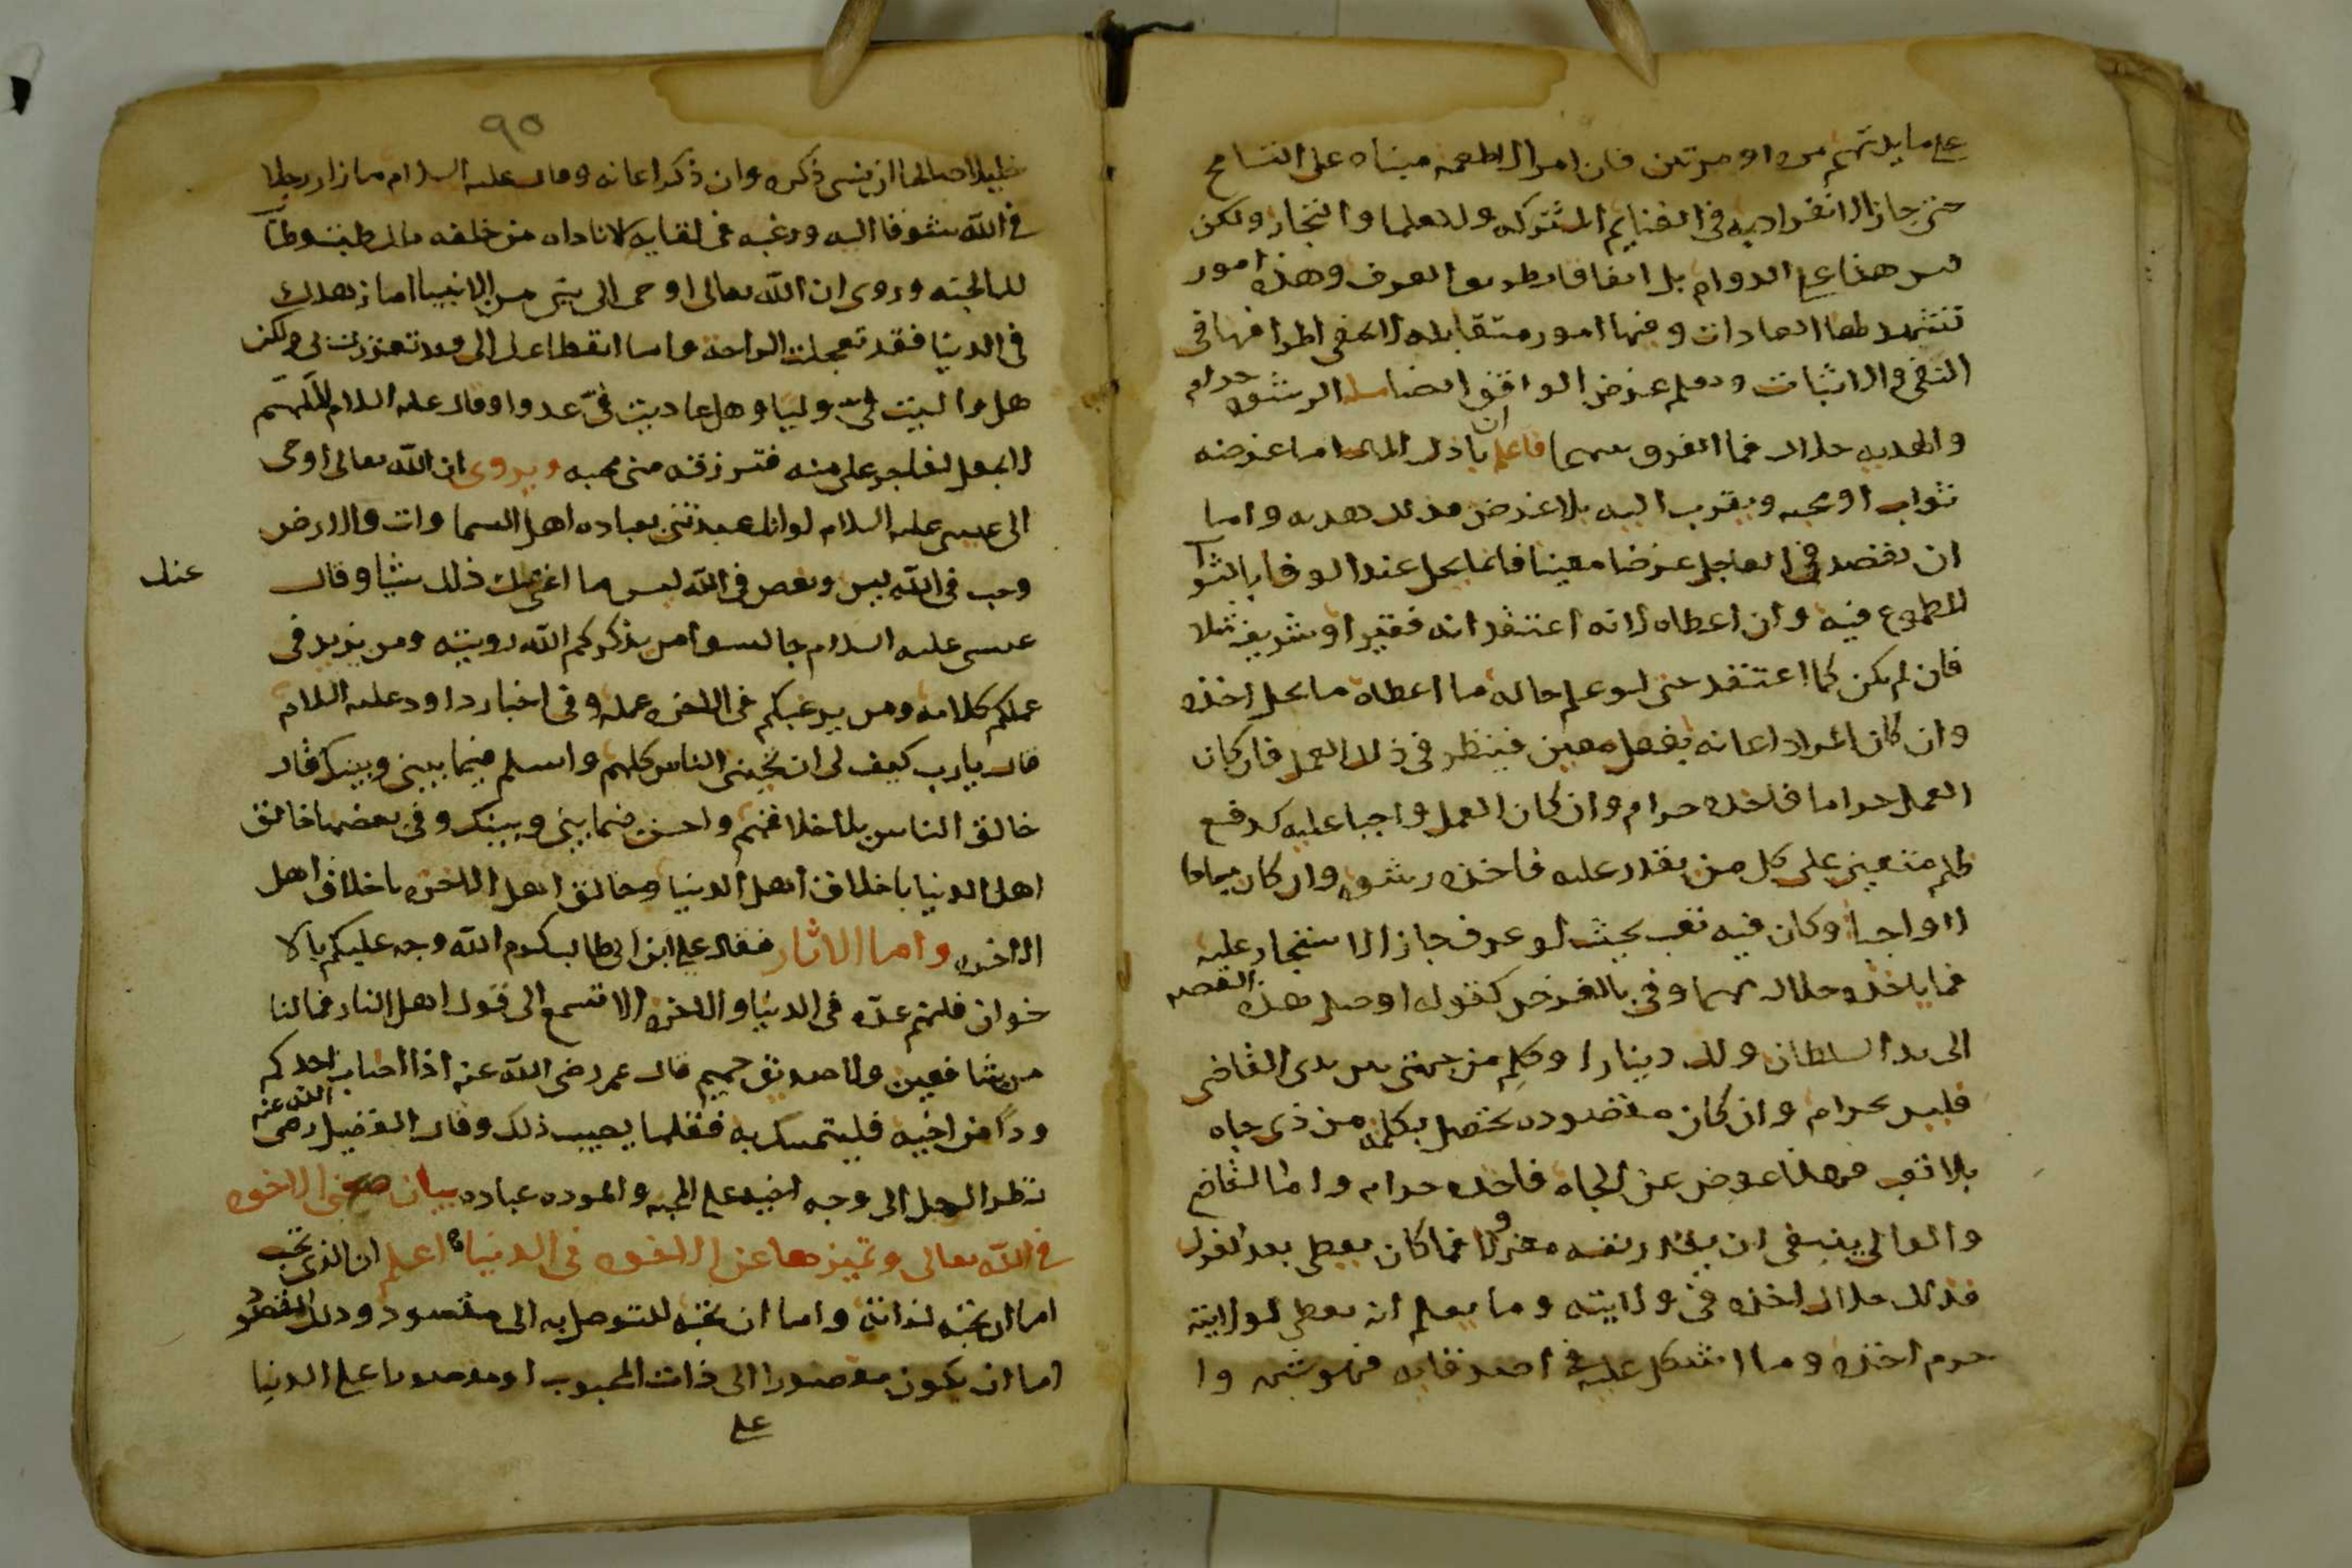 على ما يدتهم مره او مرتين فان امر الاطعمه مبناه على التسامح
حتى جاز الانفراد به في الغنايم المشتركه ولا علما والتجار ولكن
ليس هذا على الدوام بل اتفاقا بطريق العرف وهذه امور
تشهد لها العادات ومنها امور متقابله لا يخفى اطرافها في
النفي والاثبات ويعلم غرض الواقف ايضا الرشوه حرام
والهديه حلال فما الفرق بينهما فاعلم ان باذل المال اما غرضه
ثواب او محبه ويقرب اليه بلا غرض فذلك هديه واما
ان يقصد في العاجل غرضا معينا فانما يحل عند الوفا بالثواب
المطموع فيه وان اعطاه لانه اعتقد انه فقير او شريف مثلا
فان لم يكن كما اعتقد حتى لو علم حاله ما اعطاه ما يحل اخذه
وان كان المراد اعانه بفعل معين فينظر في ذلك العمل فان كان
العمل حراما فاخذه حرام وان كان العمل واجبا عليه كدفع
ظلم متعين على كل من يقدر عليه فاخذه رشوه وان كان مباحا
لا واجبا وكان فيه تعب بحيث لو عرف جاز الاستئجار عليه
فما ياخذه حلال مهما وفى بالغرض كقوله اوصل هذه القصه
الى يد السلطان ولك دينارا وكلم من جهتي بين يدي القاضي
فليس بحرام وان كان مقصوده يحصل بكلمة من ذي جاه
بلا تعب فهذا عوض عن الجاه فاخذه حرام واما القاضي
والوالي ينبغي ان يقدر نفسه معزولا فما كان يعطى بعد العزل
فذلك حلال اخذه في ولايته وما يعلم انه يعطى لولايته
حرم اخذه وما اشكل عليه في اصدقايه فهو شبهه وا
٩٥
خليلا صالحا ان نسي ذكره وان ذكر اعانه وقال عليه السلام ما زار رجلا
في الله شوقا اليه ورغبه في لقايه الا ناداه من خلفه ملك طبت وطابت
لك الجنه وروي ان الله تعالى اوحى الى نبي من الانبيا اما زهدك
في الدنيا فقد تعجلت الراحة واما انقطاعك الي فقد تعززت بي ولكن
هل واليت في وليا وهل عاديت في عدوا وقال عليه السلام اللهم
لا تجعل لفاجر علي منه فترزقه مني محبه ويروى ان الله تعالى اوحى
الى عيسى عليه السلام لو انك عبدتني بعباده اهل السماوات والارض
وحب في الله ليس وبغض في الله ليس ما اغنى عنك ذلك شيا وقال
عنك
عيسى عليه السلام جالسوا من يذكركم الله رويته ومن يزيد في
عملكم كلامه ومن يرغبكم في الاخره عمله وفي اخبار داود عليه السلام
قال يا رب كيف لي ان يحبني الناس كلهم واسلم فيما بيني وبينك قال
خالق الناس باخلاقهم واحسن فيما بيني وبينك وفي بعضها خالق
اهل الدنيا باخلاق اهل الدنيا وخالق اهل الاخره باخلاق اهل
الاخره واما الاثار فقال علي ابن ابي طالب كرم الله وجهه عليكم بالا
خوان فانهم عدة في الدنيا والاخره الا تسمع الى قول اهل النار فما لنا
من شافعين ولا صديق حميم قال عمر رضي الله عنه اذا اصاب احدكم
ودا من اخيه فليتمسك به فقلما يصيب ذلك وقال الفضيل رضي الله عنه
نظر الرجل الى وجه اخيه على المحبه والموده عباده بيان معنى الاخوه
في الله تعالى وتميزها عن الاخوه في الدنيا اعلم ان الذي تحبه
اما ان تحبه لذاته واما ان تحبه للتوصل به الى مقصود وذلك المقصود
اما ان يكون مقصورا الى ذات المحبوب او مقصورا على الدنيا
على